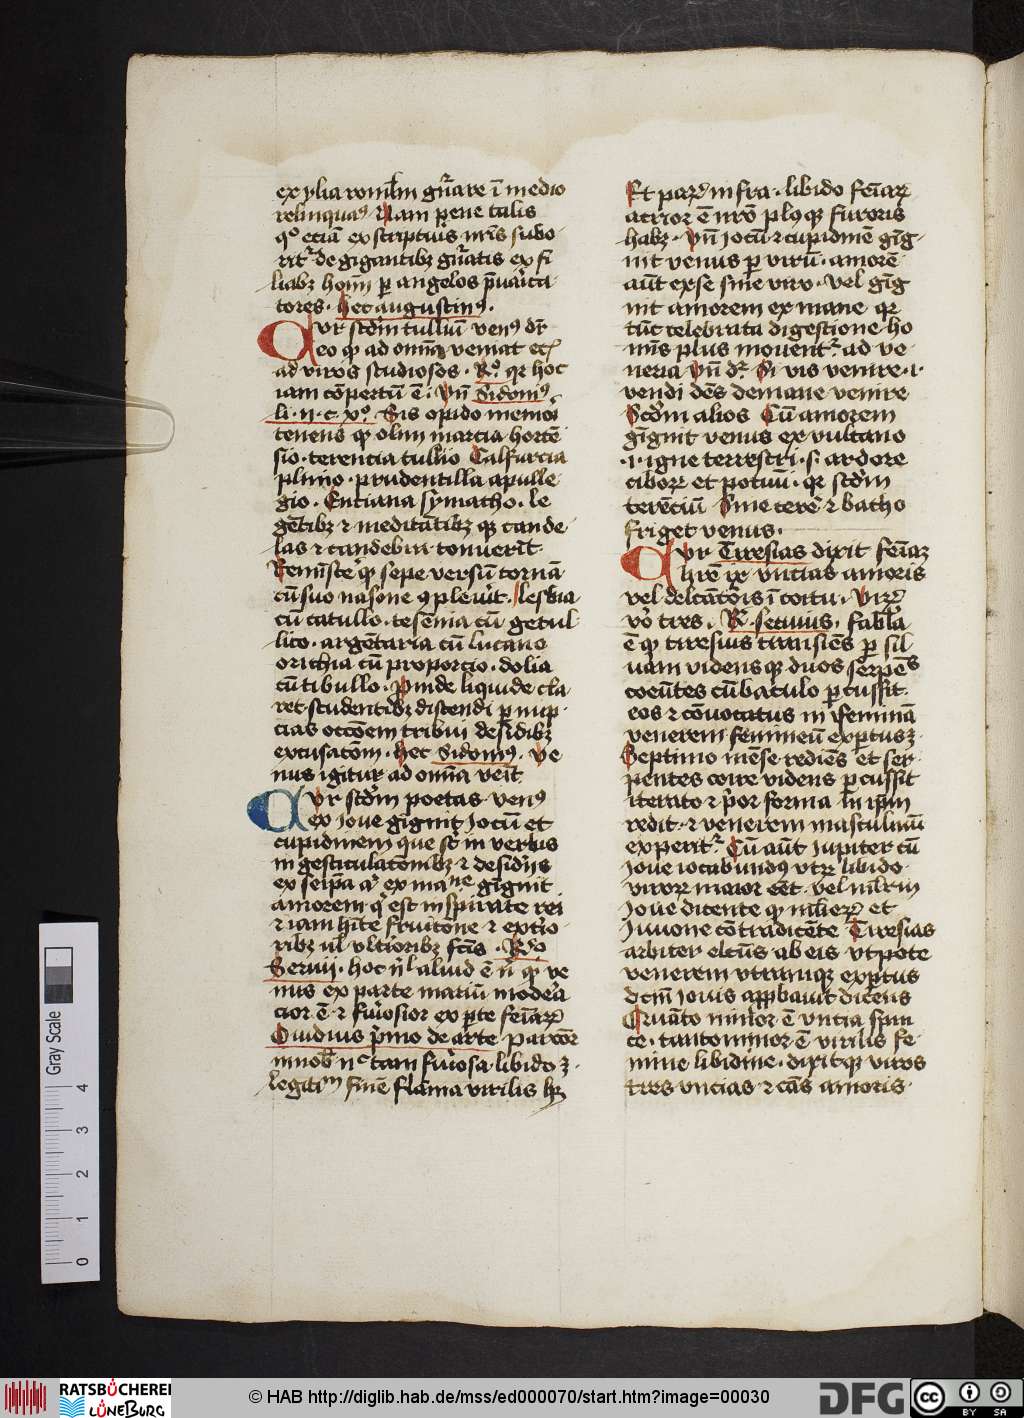 ex ylia romulm gn̄are ī medio
relinquaꝰ Nam pene talis
qͦ etiā ex scripturis nr̄is subo
ritᷣ de gigantibꝫ gn̄atis ex fi
liabꝫ hoīm ꝑ angelos p̄uarica
tores · hec augustinꝰ ·
Cvr scd̄m tulliū venꝰ dr̄
eo ꝙ ad om̄ia veniat etc̄
ad viros studiosos · Rͦ · qr hoc
iam cōpertū ē · Vn̄ Sidoniꝰ
li · ii · c · xͦ · Sis opido memor
tenens ꝙ olim martia hortē
sio · terencia tullio Calfurcia
plinio · prudentilla apulle
gio · Enciana symacho · le
gētibꝫ ⁊ meditātibꝫ qꝫ cande
las ⁊ candebra tonuerīt ·
Reministe ꝙ sepe versū corna
cū suo nasone ꝯpleuit · lesbia
cū catullo · tesenia cū getul
lico · argētaria cū lucano
orithia cū proporcio · dolia
cū tibullo · Proinde liquide cla
ret studentibꝫ discendi ꝑ nup
cias occōem tribui desidibꝫ
excusatōm · hec Sidoniꝰ · Ve
nus igitur ad om̄ia veīt
Cvr scd̄m poetas venꝰ
ex Joue gignit Jocū et
cupidinem que st̄ in verbis
in gesticulatōnibꝫ ⁊ desidijs
ex seip̄a aͦ ex mane gignit
amorem qͥ est in spirate rei
⁊ iam hite fruitōne ⁊ extio
ribꝫ ul̄ vltioribꝫ sc̄is · Rd̄o
Seruij · hoc nl̄ aliud ē n̄ ꝙ ve
nus ex parte mariū modera
cior ē ⁊ furiosior ex ꝑte feīaꝝ
Ouidius p̄mo de arte Parcior
in nob̄ nͨ tam furiosa libido ꝫ ·
legitiᵐ finē flāma virilis hꝫ
Et parꝫ infra · libido feīaꝝ
acrior ē nr̄o plꝰ qꝫ furoris
habꝫ · Vn̄ Jocū ⁊ cupidinē gīg
nit venus ꝑ virū · amorē
aūt ex se sine viro · vel gīg
nit amorem ex mane qr
tūc celebrata digestione ho
mīs plus mouentᷣ ad ve
neria Vn̄ dᷣ Si vis venire · i ·
vendi dēs de mane venire
Scd̄m alios Cū amorem
gignit venus ex vulcano
· i · igne terrestri · s · ardore
ciborꝝ et potuū · qr scd̄m
terēciū Sine cerē ⁊ bacho
friget venus ·
Cvr Tiresias dixit feīaꝫ
hr̄e ix vncias amoris
vel delectatōis ī coitu · Viꝝ
vͦo tres · Rͦ · seruius · fabl̄a
ē ꝙ tiresius transiēs ꝑ sil
uam vidensqꝫ duos serpēs
coeūtes cū baculo ꝑcussit ·
eos ⁊ cōuocatus in feminā
venerem femineū expertus ꝫ
Septimo mēse rediēs et ser
pentes coire videns ꝑcussit
iterato ⁊ p̄or forma in ip̄m
redit · ⁊ venerem masculinū
experitᷣ Cū aūt Jupiter cū
Joue iocabundus vtꝝ libido
viroꝝ maior eēt · vel ml̄rm
Joue dicente ꝙ ml̄ierꝫ et
Junone cōtradicēte Tiresias
arbiter elctūs ab eis vtpote
venerem vtramqꝫ expertus
dcm̄ iouis appbauit dicens
Quāto minor ē vncia spin
ce · tanto minor ē virilis fe
mine libidine · dixitqꝫ viros
tres vncias ⁊ cās amoris ·
Gray Scale
0 1 2 3 4
RATSBÜCHEREI
LÜNEBURG
© HAB http://diglib.hab.de/mss/ed000070/start.htm?image=00030
DFG
cc BY SA